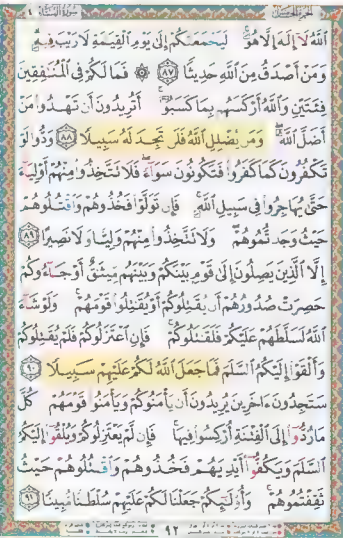 الجزء الخامس سورة النساء ٤
ٱللَّهُ لَآ إِلَٰهَ إِلَّا هُوَ لَيَجْمَعَنَّكُمْ إِلَىٰ يَوْمِ ٱلْقِيَٰمَةِ لَا رَيْبَ فِيهِ
وَمَنْ أَصْدَقُ مِنَ ٱللَّهِ حَدِيثًا ٨٧ ۞ فَمَا لَكُمْ فِي ٱلْمُنَٰفِقِينَ
فِئَتَيْنِ وَٱللَّهُ أَرْكَسَهُم بِمَا كَسَبُوٓا۟ أَتُرِيدُونَ أَن تَهْدُوا۟ مَنْ
أَضَلَّ ٱللَّهُ وَمَن يُضْلِلِ ٱللَّهُ فَلَن تَجِدَ لَهُۥ سَبِيلًا ٨٨ وَدُّوا۟ لَوْ
تَكْفُرُونَ كَمَا كَفَرُوا۟ فَتَكُونُونَ سَوَآءً فَلَا تَتَّخِذُوا۟ مِنْهُمْ أَوْلِيَآءَ
حَتَّىٰ يُهَاجِرُوا۟ فِي سَبِيلِ ٱللَّهِ فَإِن تَوَلَّوْا۟ فَخُذُوهُمْ وَٱقْتُلُوهُمْ
حَيْثُ وَجَدتُّمُوهُمْ وَلَا تَتَّخِذُوا۟ مِنْهُمْ وَلِيًّا وَلَا نَصِيرًا ٨٩
إِلَّا ٱلَّذِينَ يَصِلُونَ إِلَىٰ قَوْمٍۭ بَيْنَكُمْ وَبَيْنَهُم مِّيثَٰقٌ أَوْ جَآءُوكُمْ
حَصِرَتْ صُدُورُهُمْ أَن يُقَٰتِلُوكُمْ أَوْ يُقَٰتِلُوا۟ قَوْمَهُمْ وَلَوْ شَآءَ
ٱللَّهُ لَسَلَّطَهُمْ عَلَيْكُمْ فَلَقَٰتَلُوكُمْ فَإِنِ ٱعْتَزَلُوكُمْ فَلَمْ يُقَٰتِلُوكُمْ
وَأَلْقَوْا۟ إِلَيْكُمُ ٱلسَّلَمَ فَمَا جَعَلَ ٱللَّهُ لَكُمْ عَلَيْهِمْ سَبِيلًا ٩٠
سَتَجِدُونَ ءَاخَرِينَ يُرِيدُونَ أَن يَأْمَنُوكُمْ وَيَأْمَنُوا۟ قَوْمَهُمْ كُلَّ
مَا رُدُّوٓا۟ إِلَى ٱلْفِتْنَةِ أُرْكِسُوا۟ فِيهَا فَإِن لَّمْ يَعْتَزِلُوكُمْ وَيُلْقُوٓا۟ إِلَيْكُمُ
ٱلسَّلَمَ وَيَكُفُّوٓا۟ أَيْدِيَهُمْ فَخُذُوهُمْ وَٱقْتُلُوهُمْ حَيْثُ
ثَقِفْتُمُوهُمْ وَأُو۟لَٰٓئِكُمْ جَعَلْنَا لَكُمْ عَلَيْهِمْ سُلْطَٰنًا مُّبِينًا ٩١
٩٢